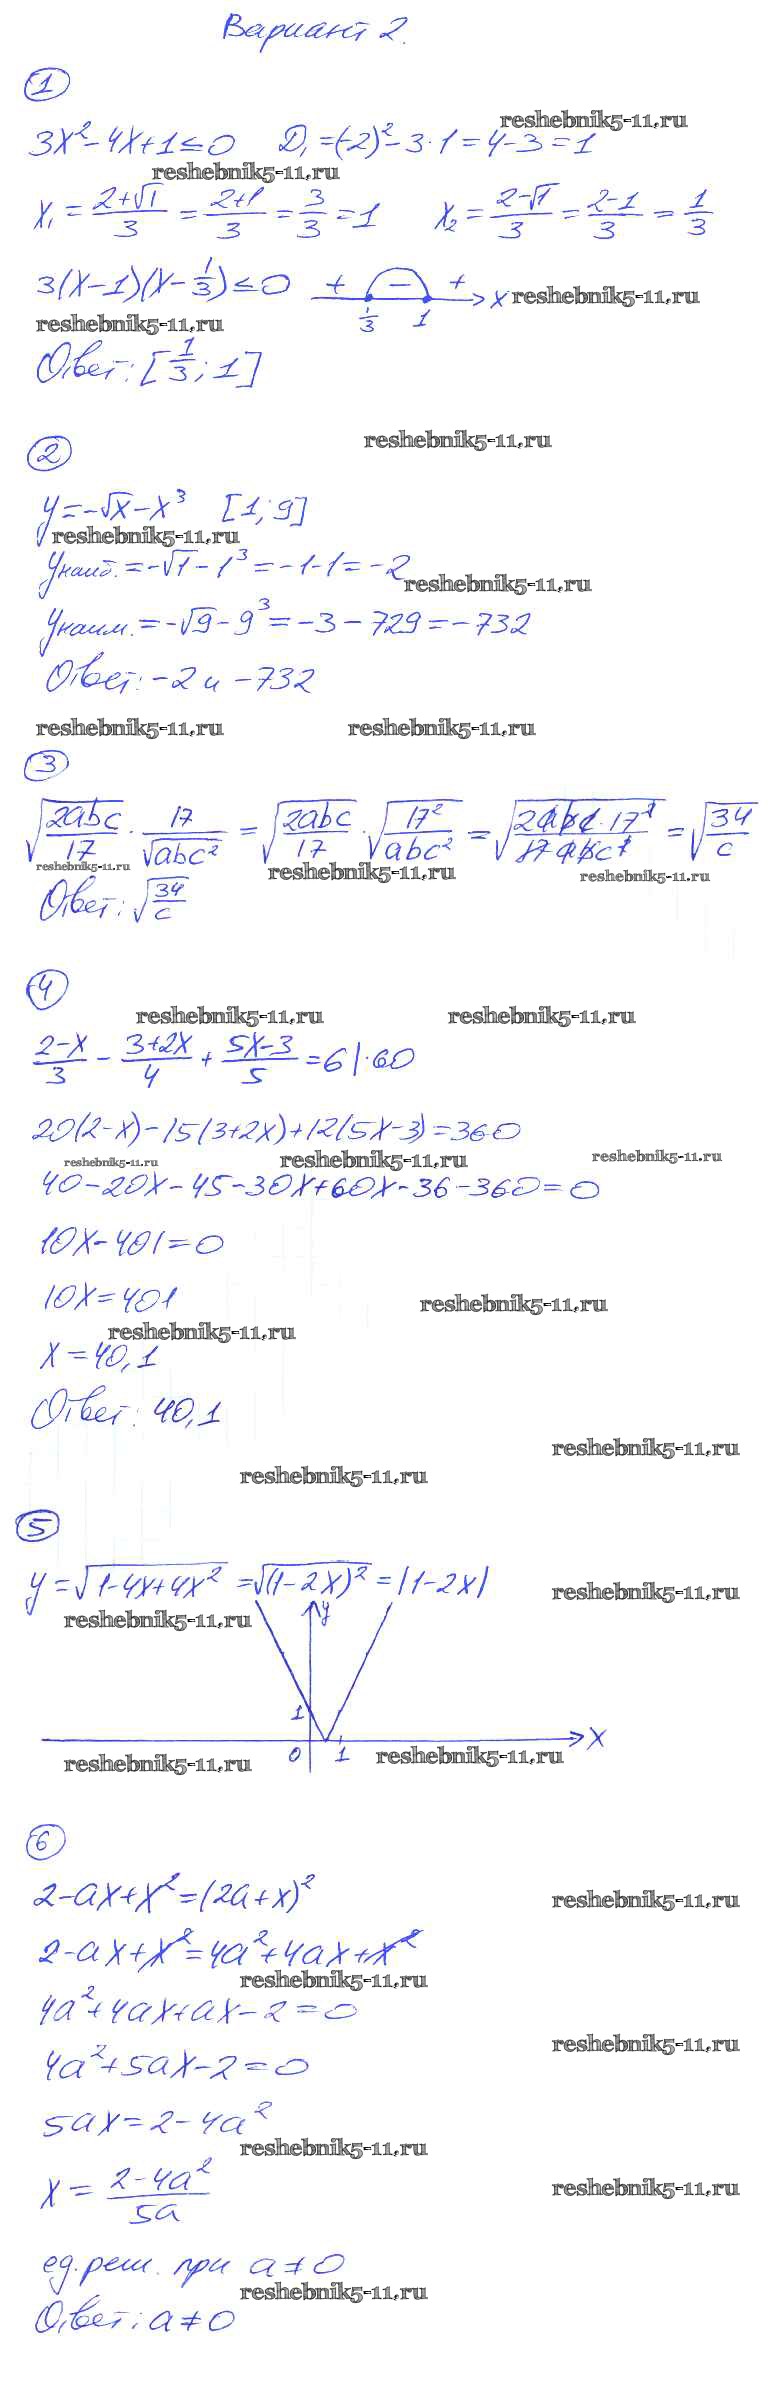 Вариант 2.
1
reshebnik5-11.ru
3x² - 4x + 1 ≤ 0 D₁ = (-2)² - 3·1 = 4 - 3 = 1
reshebnik5-11.ru
x₁ = (2+√1)/3 = (2+1)/3 = 3/3 = 1 x₂ = (2-√1)/3 = (2-1)/3 = 1/3
3(x-1)(x-1/3) ≤ 0 + - + x reshebnik5-11.ru
1/3 1
reshebnik5-11.ru
Ответ: [1/3; 1]
reshebnik5-11.ru
2
y = -√x - x³ [1; 9]
reshebnik5-11.ru
yнаиб. = -√1 - 1³ = -1-1 = -2
reshebnik5-11.ru
yнаим. = -√9 - 9³ = -3 - 729 = -732
Ответ: -2 и -732
reshebnik5-11.ru reshebnik5-11.ru
3
√(2abc/17) · 17/√(abc²) = √(2abc/17) · √(17²/(abc²)) = √((2abc·17²)/(17abc²)) = √(34/c)
reshebnik5-11.ru reshebnik5-11.ru reshebnik5-11.ru
Ответ: √(34/c)
4
reshebnik5-11.ru reshebnik5-11.ru
(2-x)/3 - (3+2x)/4 + (5x-3)/5 = 6 |·60
20(2-x) - 15(3+2x) + 12(5x-3) = 360
reshebnik5-11.ru reshebnik5-11.ru reshebnik5-11.ru
40 - 20x - 45 - 30x + 60x - 36 - 360 = 0
10x - 401 = 0
10x = 401
reshebnik5-11.ru
reshebnik5-11.ru
x = 40,1
Ответ: 40,1
reshebnik5-11.ru
reshebnik5-11.ru
5
y = √(1-4x+4x²) = √((1-2x)²) = |1-2x|
reshebnik5-11.ru
reshebnik5-11.ru
y
1
x
0 1
reshebnik5-11.ru reshebnik5-11.ru
6
2 - ax + x² = (2a+x)²
reshebnik5-11.ru
2 - ax + x² = 4a² + 4ax + x²
reshebnik5-11.ru
4a² + 4ax + ax - 2 = 0
reshebnik5-11.ru
4a² + 5ax - 2 = 0
5ax = 2 - 4a²
reshebnik5-11.ru
x = (2-4a²)/5a
reshebnik5-11.ru
ед. реш. при a ≠ 0
reshebnik5-11.ru
Ответ: a ≠ 0